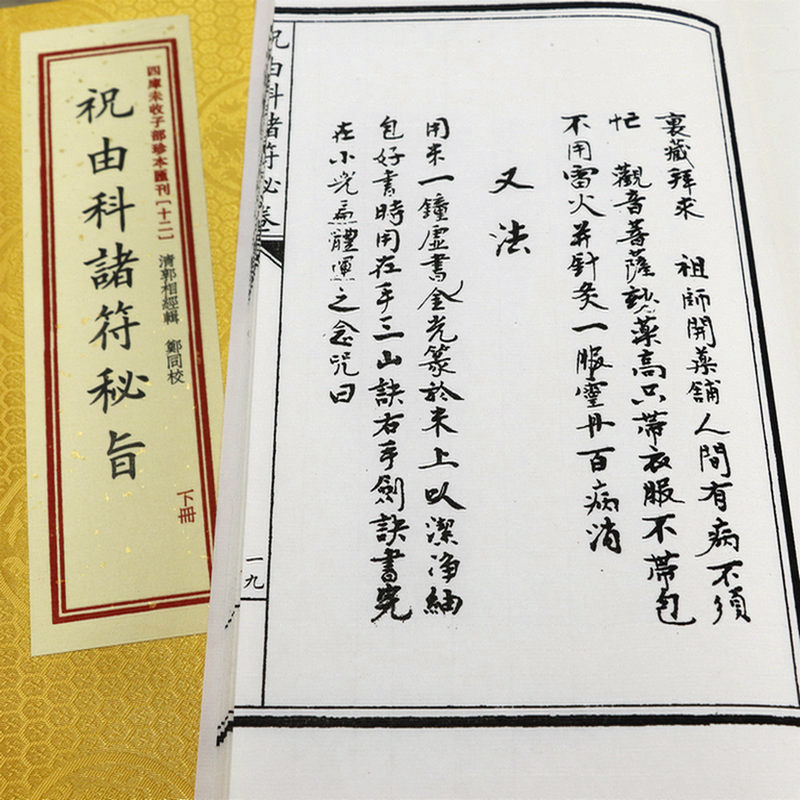 四庫未收子部珍本匯刊[十二]
清郭相經輯 鄭同校
祝由科諸符秘旨
下冊
裏藏拜來 祖師開藥舖人間有病不須
忙 觀音菩薩妙藥高只帶衣服不帶包
不用雷火并針灸一服靈丹百病消
又法
用米一鐘虛書金光篆於米上以潔淨紬
包好書時用左手三山訣右手劍訣書完
在小児遍體運之念咒曰
祝由科諸符秘卷
一九